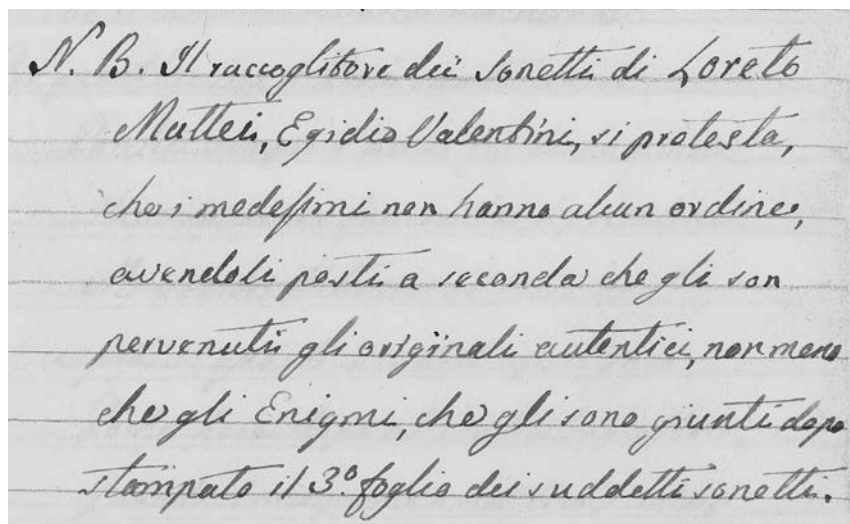 N. B. Il raccoglitore dei sonetti di Loreto
Mattei, Egidio Valentini, si protesta,
che i medesimi non hanno alcun ordine,
avendoli posti a seconda che gli son
pervenuti gli originali autentici, non meno
che gli Enigmi, che gli sono giunti dopo
stampato il 3º. foglio dei suddetti sonetti.